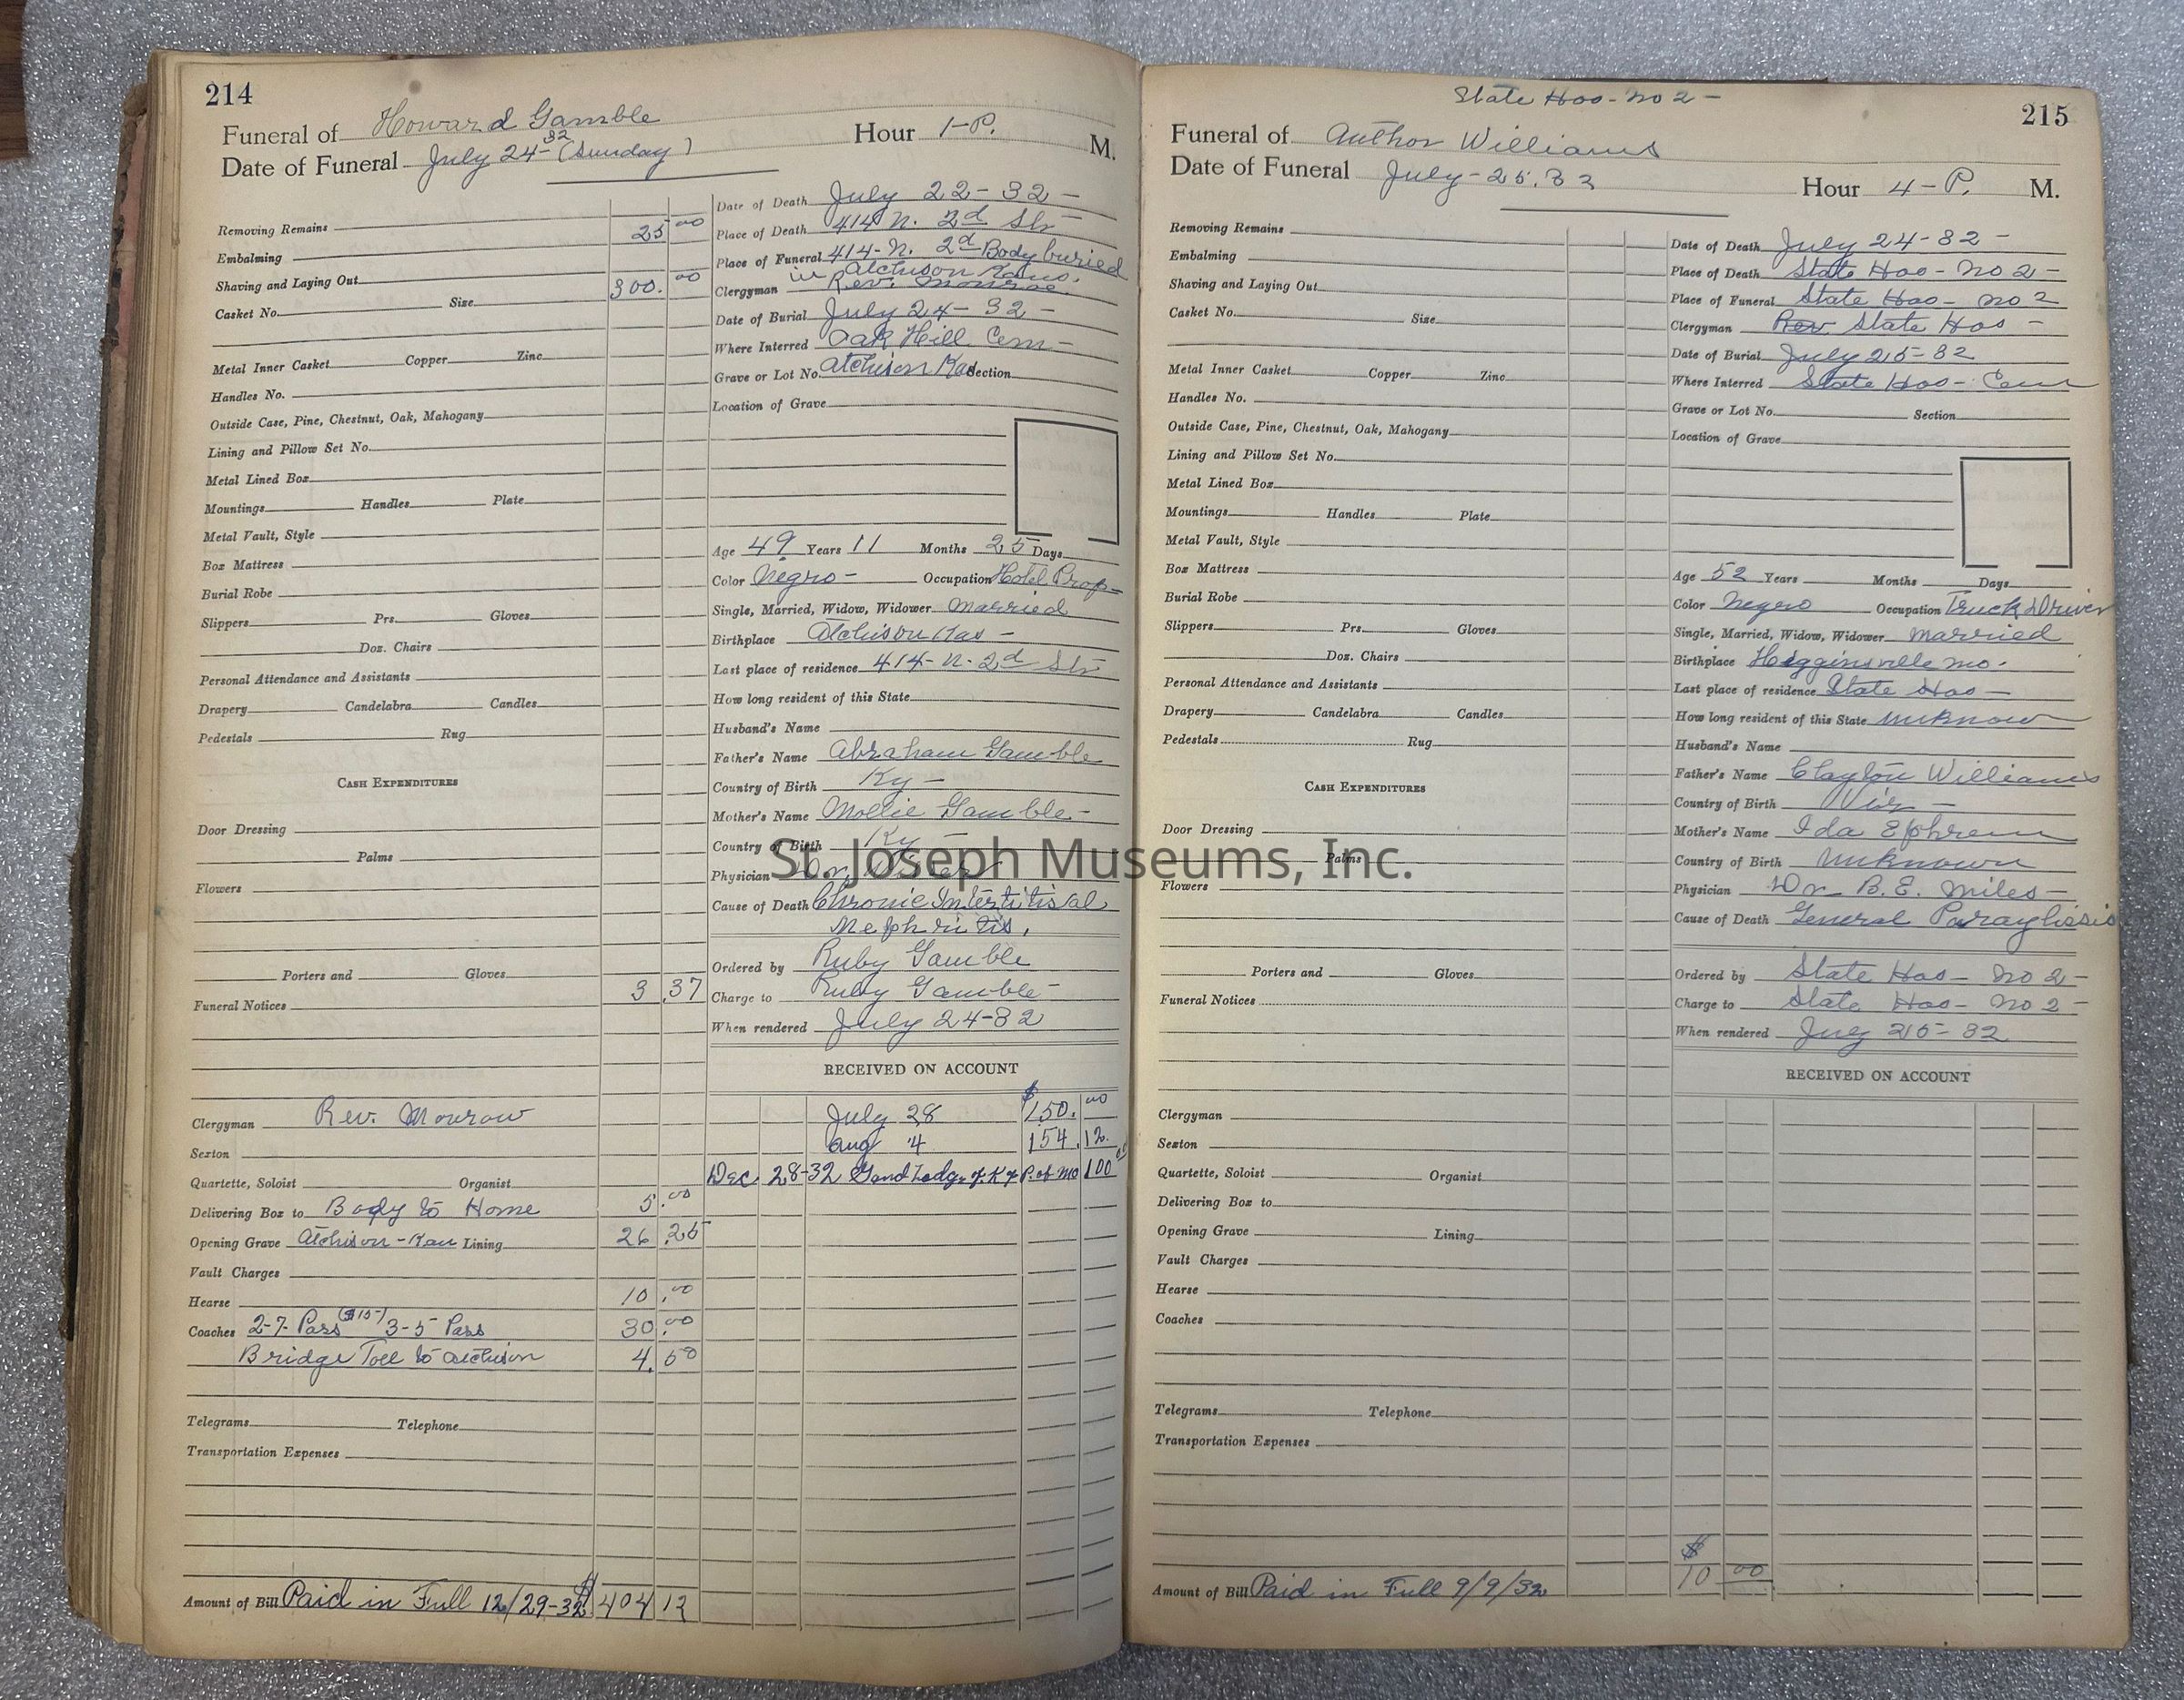 214
Funeral of Howard Gamble Hour 1-P. M.
Date of Funeral July 24-32 (Sunday)
Removing Remains 25 00
Embalming
Shaving and Laying Out 300. 00
Casket No. Size
Metal Inner Casket Copper Zinc
Handles No.
Outside Case, Pine, Chestnut, Oak, Mahogany
Lining and Pillow Set No.
Metal Lined Box
Mountings Handles Plate
Metal Vault, Style
Box Mattress
Burial Robe
Slippers Prs. Gloves
Doz. Chairs
Personal Attendance and Assistants
Drapery Candelabra Candles
Pedestals Rug
CASH EXPENDITURES
Door Dressing
Palms
Flowers
Porters and Gloves
Funeral Notices 3 .37
Clergyman Rev. Monrow
Sexton
Quartette, Soloist Organist
Delivering Box to Body to Home 5.00
Opening Grave Atchison-Kan Lining 26.25
Vault Charges
Hearse 10.00
Coaches 2-7-Pass ($15-) 3-5 Pass 30.00
Bridge Toll to Atchison 4.50
Telegrams Telephone
Transportation Expenses
Amount of Bill Paid in Full 12/29-32 $ 404 12
Date of Death July 22-32-
Place of Death 414 N. 2d Str
Place of Funeral 414-N. 2d Body buried
in Atchison Kans.
Clergyman Rev. Monroe
Date of Burial July 24-32-
Where Interred Oak Hill Cem-
Grave or Lot No. Atchison Kas Section
Location of Grave
Age 49 Years 11 Months 25 Days
Color Negro- Occupation Hotel Prop-
Single, Married, Widow, Widower Married
Birthplace Atchison Kas-
Last place of residence 414-N. 2d Str.
How long resident of this State
Husband's Name
Father's Name Abraham Gamble
Country of Birth Ky-
Mother's Name Mollie Gamble-
Country of Birth Ky-
Physician
Cause of Death Chronic Intertitisal
Nephritis.
Ordered by Ruby Gamble
Charge to Ruby Gamble-
When rendered July 24-32
RECEIVED ON ACCOUNT
July 28 $150.00
Aug 4 154.12
Dec 28-32 Gand Lodge of K of P. of Mo 100 00
St. Joseph Museums, Inc.
State Hos-No 2-
215
Funeral of Author Williams
Date of Funeral July-25.32 Hour 4-P. M.
Removing Remains
Embalming
Shaving and Laying Out
Casket No. Size
Metal Inner Casket Copper Zinc
Handles No.
Outside Case, Pine, Chestnut, Oak, Mahogany
Lining and Pillow Set No.
Metal Lined Box
Mountings Handles Plate
Metal Vault, Style
Box Mattress
Burial Robe
Slippers Prs. Gloves
Doz. Chairs
Personal Attendance and Assistants
Drapery Candelabra Candles
Pedestals Rug
CASH EXPENDITURES
Door Dressing
Palms
Flowers
Porters and Gloves
Funeral Notices
Clergyman
Sexton
Quartette, Soloist Organist
Delivering Box to
Opening Grave Lining
Vault Charges
Hearse
Coaches
Telegrams Telephone
Transportation Expenses
Amount of Bill Paid in Full 9/9/32 $ 10 00
Date of Death July 24-32-
Place of Death State Hos-No 2-
Place of Funeral State Hos-No 2
Clergyman Rev State Hos-
Date of Burial July 25-32
Where Interred State Hos-Cem
Grave or Lot No. Section
Location of Grave
Age 52 Years Months Days
Color Negro Occupation Truck Driver
Single, Married, Widow, Widower Married
Birthplace Higginsville Mo.
Last place of residence State Hos-
How long resident of this State Unknown
Husband's Name
Father's Name Clayton Williams
Country of Birth Vir-
Mother's Name Ida Ephrem
Country of Birth Unknown
Physician Dr. B.E. Miles-
Cause of Death General Paraylissis
Ordered by State Hos-No 2-
Charge to State Hos-No 2-
When rendered July 25-32
RECEIVED ON ACCOUNT